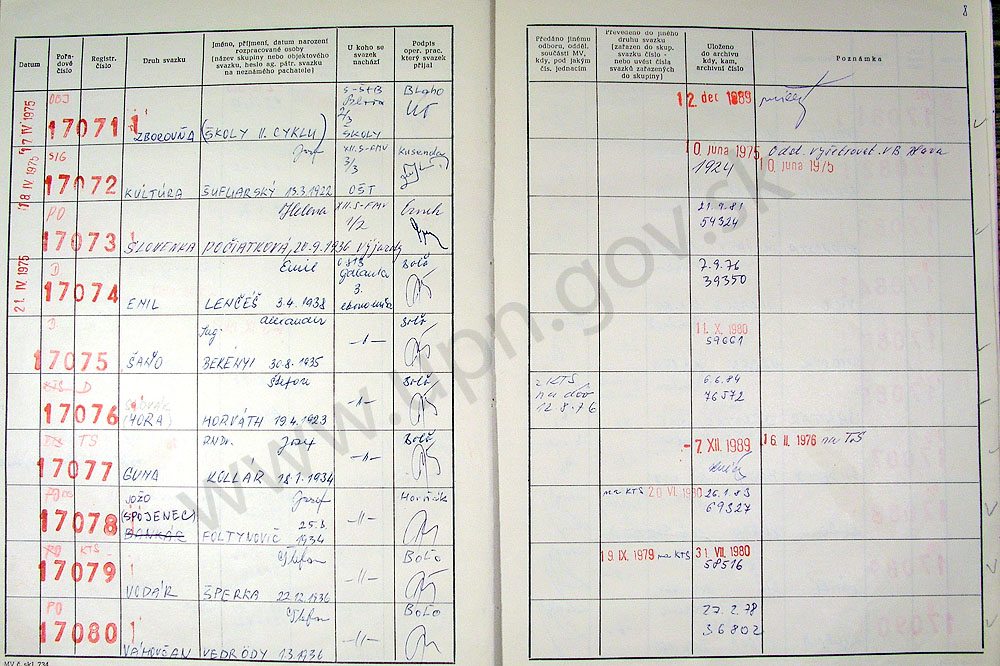 8
Datum
Pořa-
dové
číslo
Registr.
číslo
Druh svazku
Jméno, příjmení, datum narození
rozpracované osoby
(název skupiny nebo objektového
svazku, heslo ag. pátr. svazku
na neznámého pachatele)
U koho se
svazek
nachází
Podpis
oper. prac.
který svazek
přijal
Předáno jinému
odboru, odděl.
součásti MV,
kdy, pod jakým
čís. jednacím
Převedeno do jiného
druhu svazku
(zařazen do skup.
svazku číslo -
nebo uvést čísla
svazků zařazených
do skupiny)
Uloženo
do archivu
kdy, kam,
archivní číslo
Poznámka
17. IV 1975
OBJ
17071
ZBOROVŇA (ŠKOLY II. CYKLU)
2/3
ŠKOLY
Blaho
12. dec 1989
18. IV. 1975
SIG
17072
KULTÚRA
Jozef
ŠUFLIARSKÝ 13.3.1922
XII.S-FMV
3/3
OŠT
10. júna 1975
1924
Odd. vyšetrovat. VB
10. júna 1975
PO
17073
SLOVENKA
Helena
POČIATKOVÁ, 20.9.1936
XII.S-FMV
1/2
Výjazdy
21.9.81
54324
21. IV 1975
D
17074
EMIL
Emil
LENČÉŠ 3.4.1938
Galanta
3.
ekonomika
Bolo
7.9.76
39350
D
17075
ŠAŇO
Ing. Alexander
BEKÉNYI 30.8.1935
-//-
Bolo
11. X. 1980
59061
KTS D
17076
(HORA)
Štefan
HORVÁTH 19.4.1923
-//-
Bolo
z KTS
na dôv
12.8.76
6.6.84
76572
TS
17077
GUMA
RNDr. Jozef
KOLLÁR 18.1.1934
-//-
Bolo
-7. XII. 1989
16. II. 1976 na TS
17078
JOŽO
(SPOJENEC)
BANKÁR
Jozef
FOLTYNOVIČ 25.3.
1934
-//-
Horňák
na KTS 20 VI 1980
26.1.83
69327
PO KTS
17079
VODÁR
Štefan
ŠPERKA 22.12.1936
-//-
Boľo
19. IX. 1979 na KTS
31. VII. 1980
58516
PO
17080
VÁHOVČAN
Štefan
VEDRÖDY 1.3.1936
-//-
Boľo
27.2.78
36802
MV č. skl. 734
www.upn.gov.sk